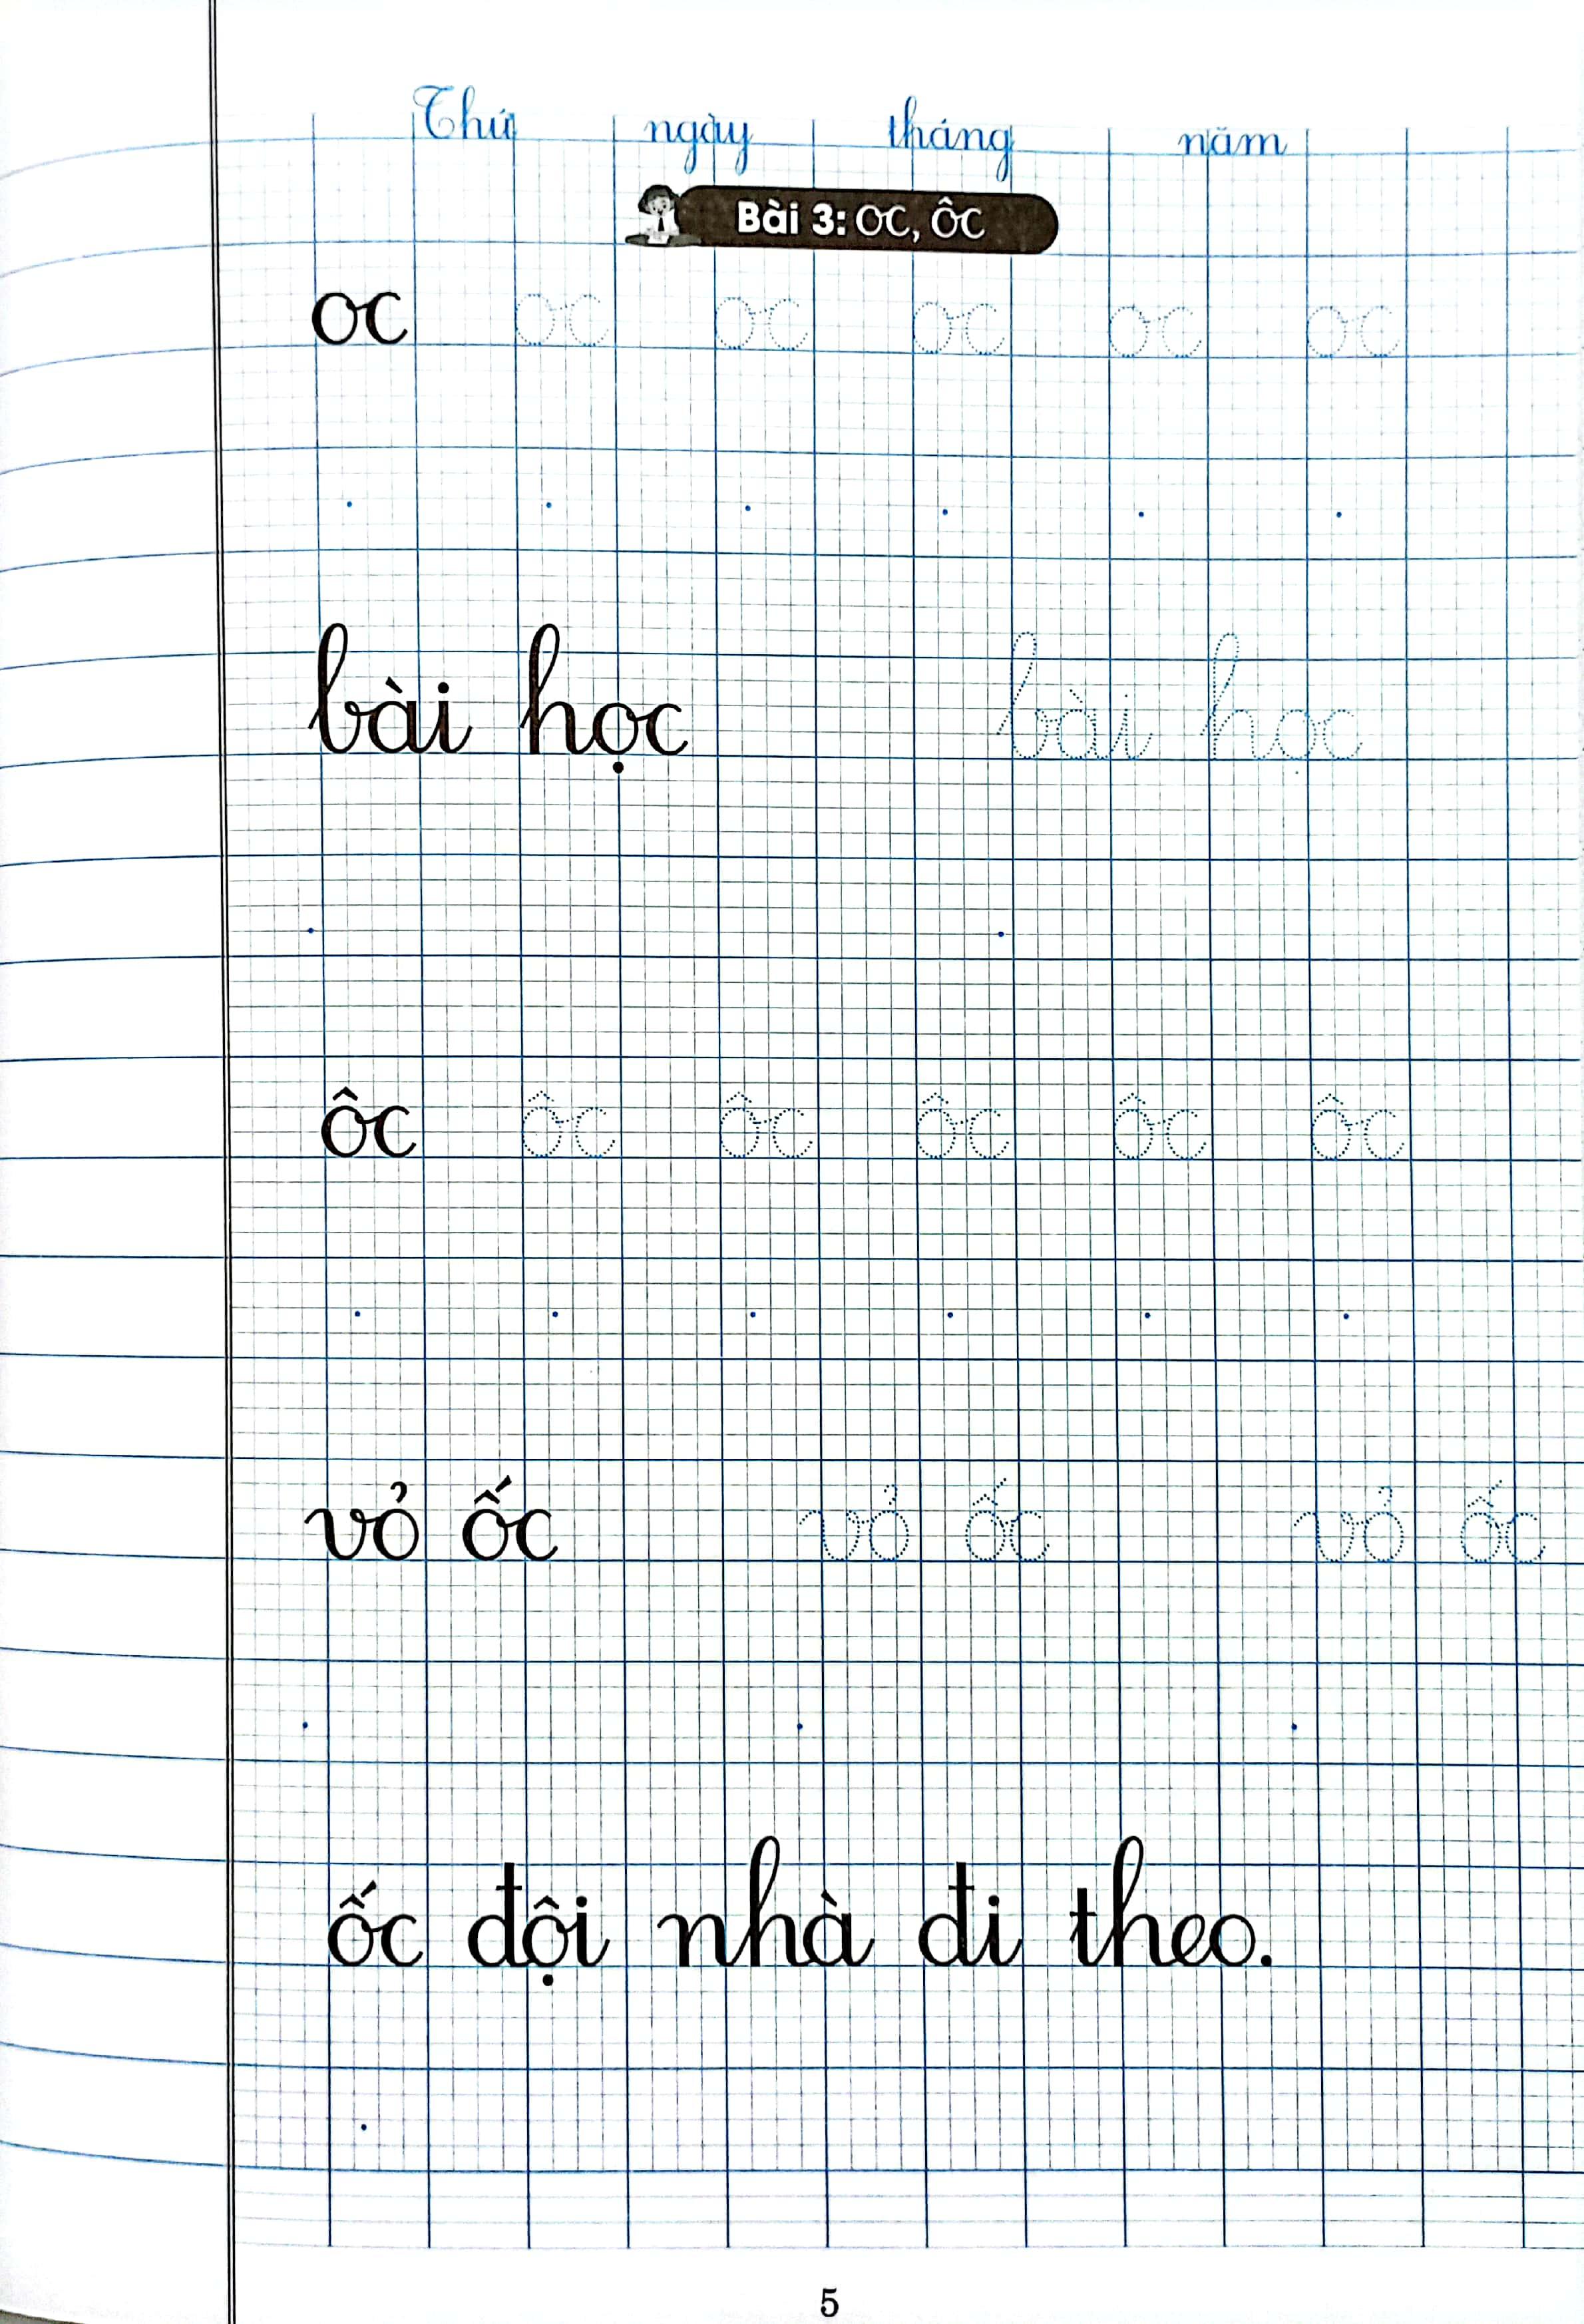 Thứ ngày tháng năm
Bài 3: oc, ôc
oc oc oc oc oc oc
bài học bài học
ôc ôc ôc ôc ôc ôc
vỏ ốc vỏ ốc vỏ ốc
ốc đội nhà đi theo.
5